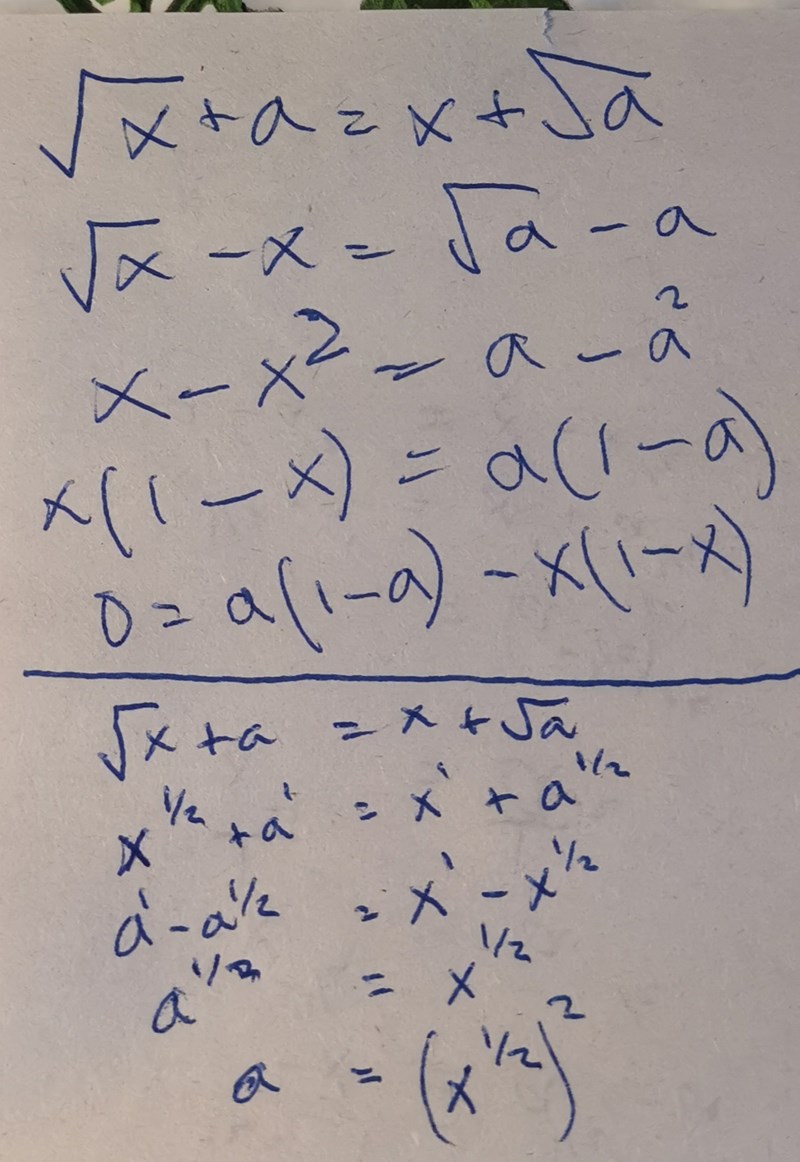 √x + a = x + √a
√x - x = √a - a
x - x² = a - a²
x(1 - x) = a(1 - a)
0 = a(1-a) - x(1-x)
√x + a = x + √a
x^1/2 + a^1 = x^1 + a^1/2
a^1 - a^1/2 = x^1 - x^1/2
a^1/2 = x^1/2
a = (x^1/2)^2